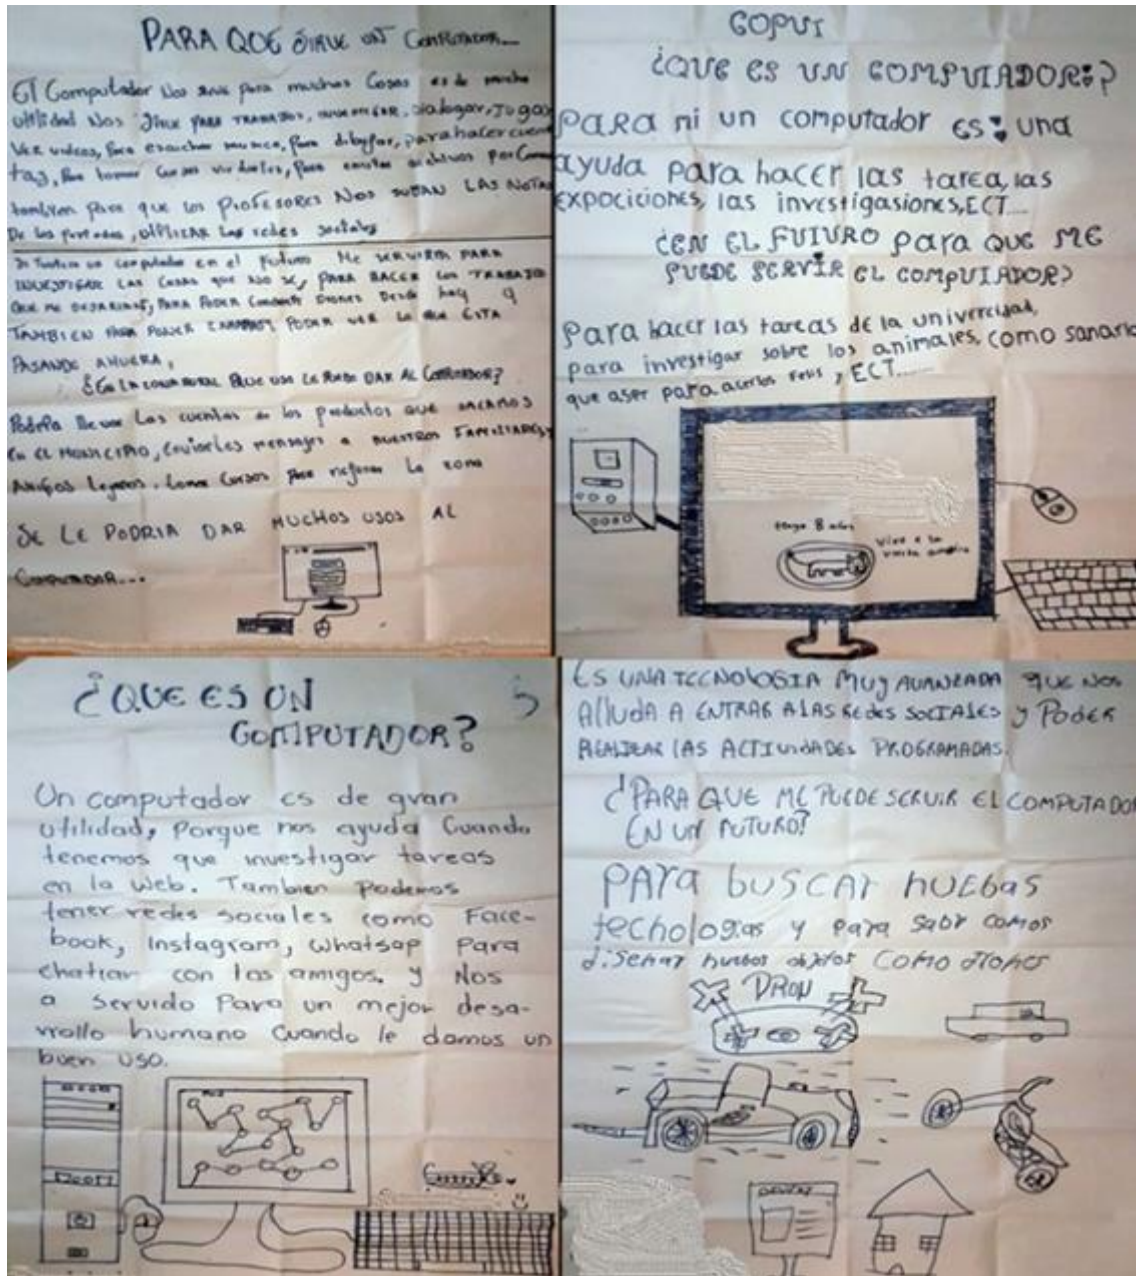 PARA QUE SIRVE UN COMPUTADOR...
El Computador Nos sirve para muchas Cosas es de mucha
utilidad Nos sirve PARA TRABAJOS, INVESTIGAR, dialogar, Jugar
Ver videos, Para escuchar musica, Para dibujar, para hacer cuen
tas, Para tomar Cursos virtuales, Para enviar archivos por Correo
tambien Para que los PROFESORES NOS SUBAN LAS NOTAS
De los periodos, UTILIZAR Las redes sociales
un computador en el futuro Me SERVIRIA PARA
INVESTIGAR LAS COSAS QUE NO SE, PARA HACER LOS TRABAJOS
QUE ME DEJARIAN, PARA PODER Desde hay y
TAMBIEN PARA PONER PODER VER LO QUE ESTA
PASANDO AHUERA,
¿EN LA ZONA RURAL QUE USO LE PUEDE DAR AL COMPUTADOR?
Podria llevar Las cuentas de los productos que SACAMOS
En EL MUNICIPIO, Enviarles mensajes a NUESTROS FAMILIARES
AMIGOS Lejanos, tomar Cursos Para mejorar La zona
SE LE PODRIA DAR MUCHOS USOS AL
COMPUTADOR...
GOPUI
¿QUE ES UN COMPUTADOR?
PARA mi un computador es: una
ayuda para hacer las tarea, las
EXPOCICIONES, las investigasiones, ECT....
¿EN EL FUTURO para QUE ME
PUEDE SERVIR EL COMPUTADOR?
Para hacer las tareas de la univercidad,
para investigar sobre los animales, como sanarlo
que aser para acerlos , ECT......
tengo 8 años
vivo a la
¿QUE ES UN
COMPUTADOR?
Un computador es de gran
utilidad, Porque nos ayuda Cuando
tenemos que investigar tareas
en la web. Tambien Podemos
tener redes sociales como Face-
book, Instagram, Whatsap Para
chatiar con los amigos. y Nos
a servido Para un mejor desa-
rrollo humano Cuando le damos un
buen uso.
ES UNA TECNOLOGIA MUY AVANZADA QUE NOS
AlluDA A ENTRAR A LAS REDES SOCIALES y PODER
REALIZAR LAS ACTIVIDADES PROGRAMADAS.
¿PARA QUE ME PUEDE SERVIR EL COMPUTADOR
EN UN FUTURO?
PARA buscar huebas
techologias y para sabr comos
diseñar huebos objetos Como drones
DRON